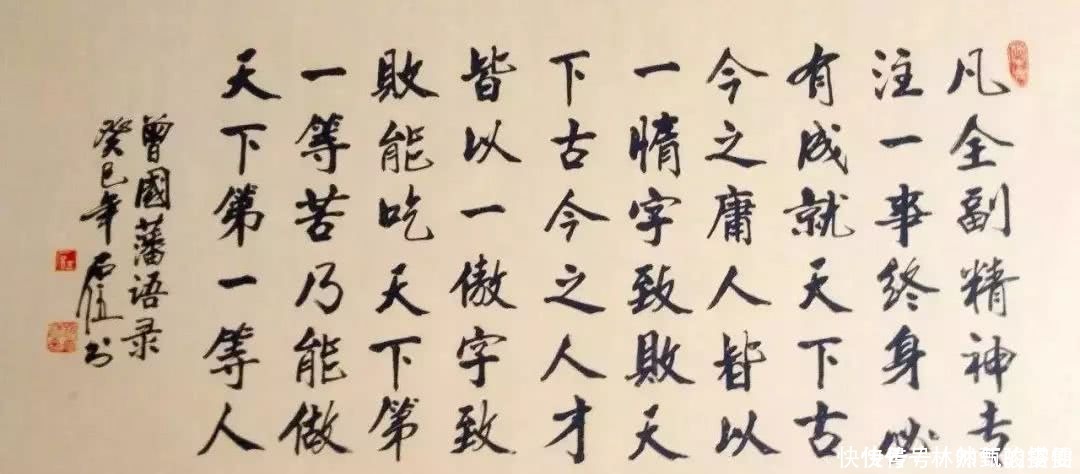 凡全副精神专
注一事终身必
有成就天下古
今之庸人皆以
一惰字致敗天
下古今之人才
皆以一傲字致
敗能吃天下第
一等苦乃能做
天下第一等人
曾國藩语录
癸巳年石书